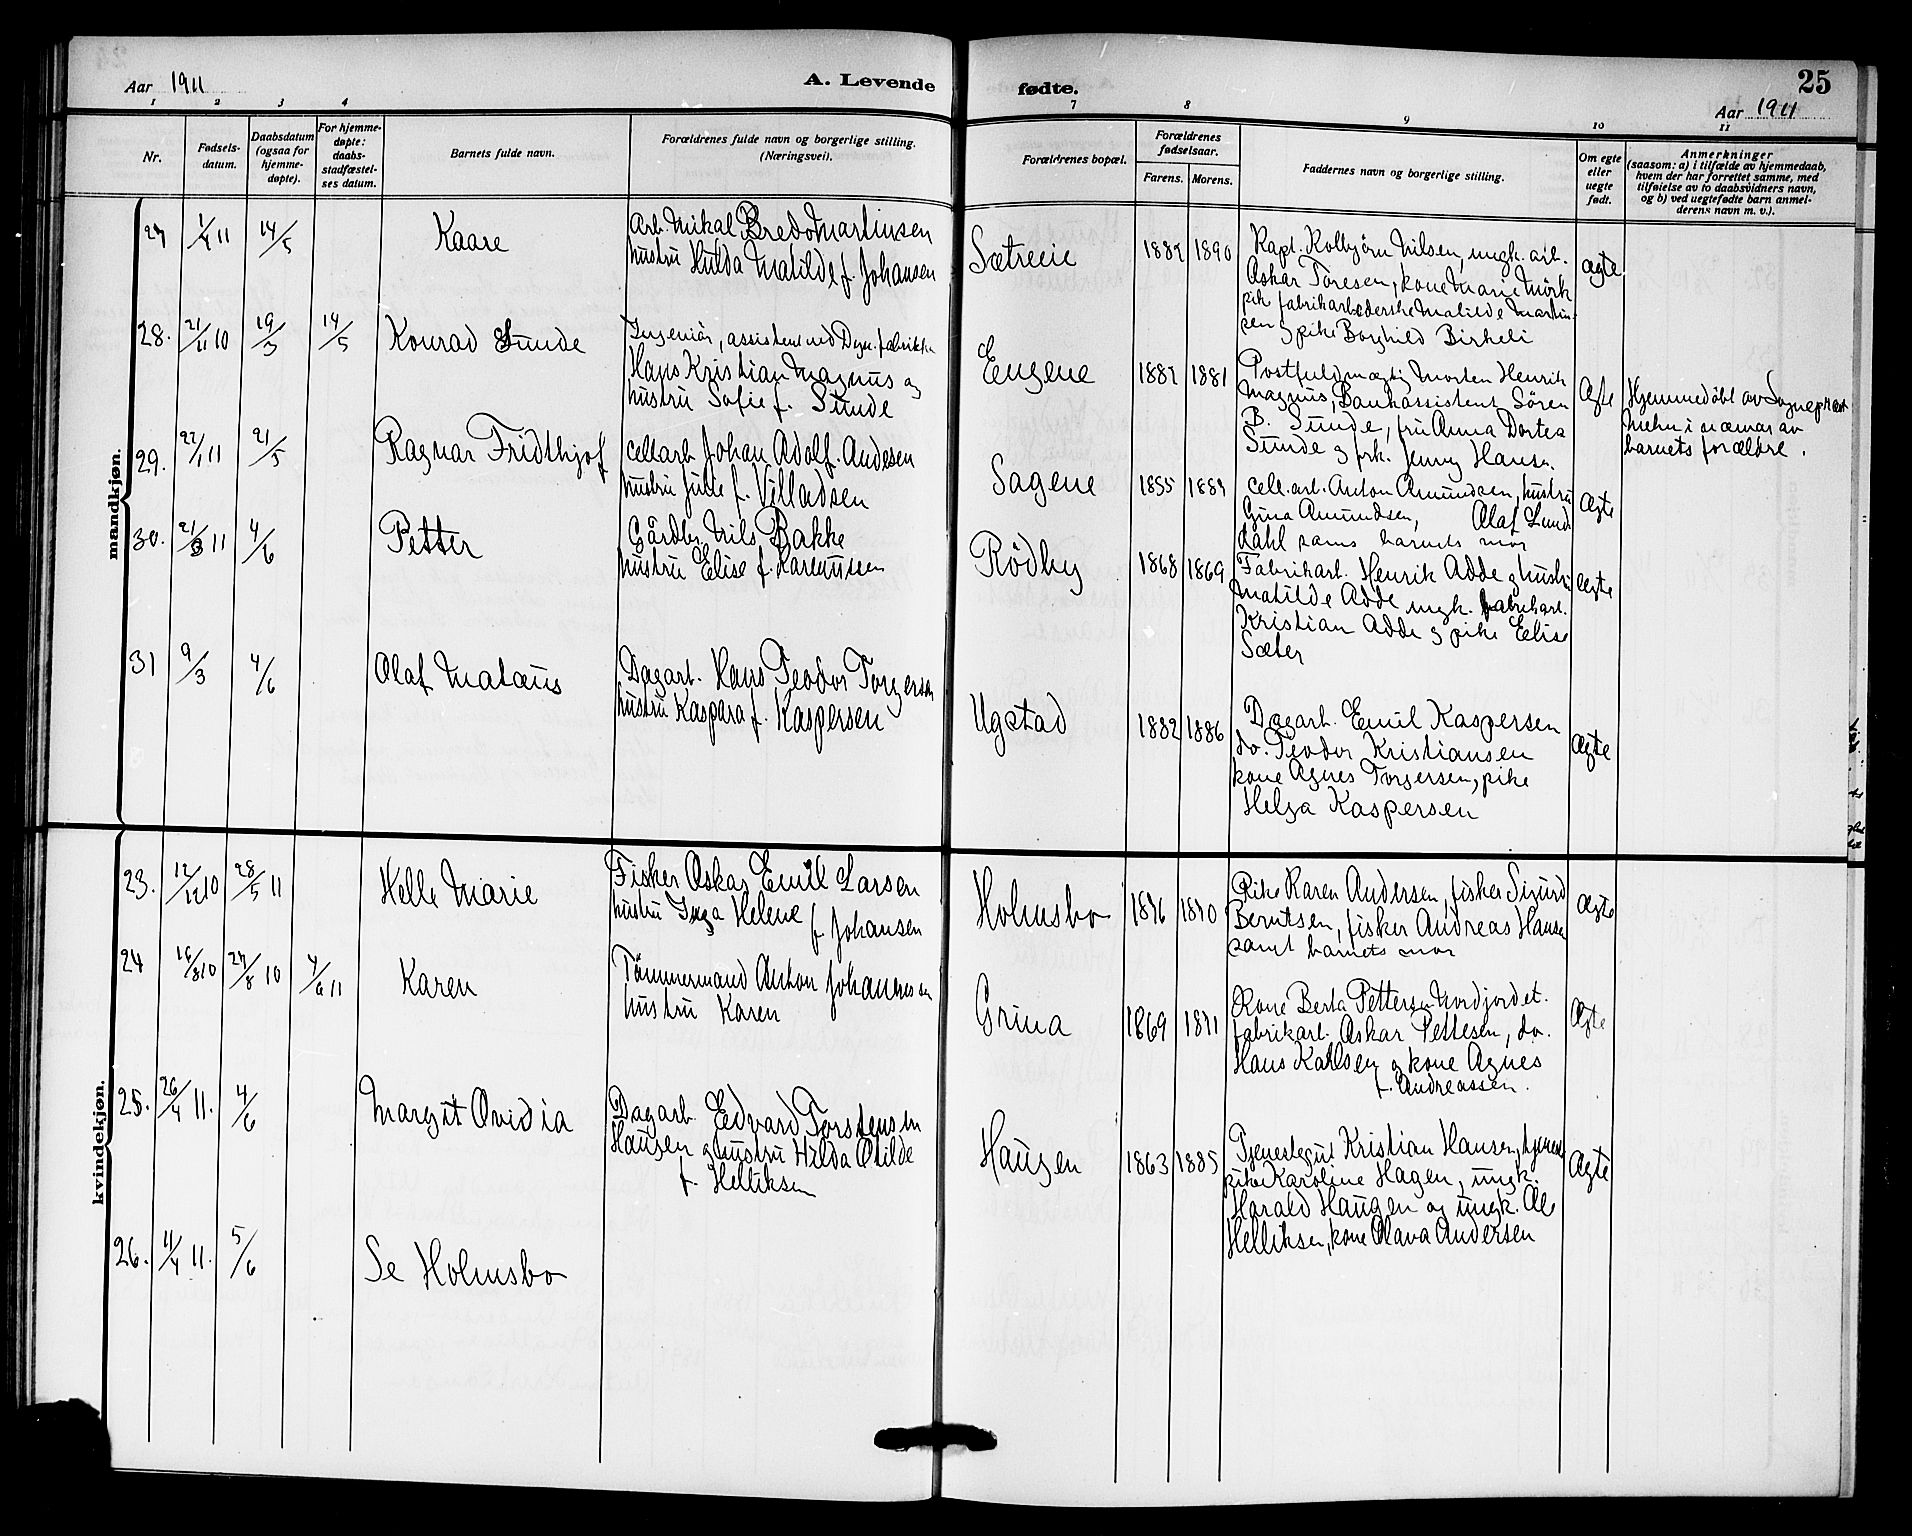 Aar 1911
A. Levende
fødte.
25
Aar 1911
1 2 3 4
7 8 9 10 11
Nr.
Fødsels-
datum.
Daabsdatum
(ogsaa for
hjemme-
døpte).
For hjemme-
døpte:
daabs-
stadfæstel-
ses datum.
Barnets fulde navn.
Forældrenes fulde navn og borgerlige stilling.
(Næringsvei).
Forældrenes bopæl.
Forældrenes
fødselsaar.
Farens. Morens.
Faddernes navn og borgerlige stilling.
Om egte
eller
uegte
født.
Anmerkninger
(saasom: a) i tilfælde av hjemmedaab,
hvem der har forrettet samme, med
tilføielse av to daabsvidners navn,
og b) ved uegtefødte barn anmel-
derens navn m. v.).
mandkjøn.
27 1/4 11 14/5
Kaare
Arb. Mikal Bredo Martinsen
hustru Hulda Matilde f. Johansen
Sætreeie
1887 1890
Kapt. Kolbjörn Nilsen, ungk. arb.
Askar Toresen, kone Marie Mörk
pik fabrikarbederske Matilde Martin-
sen og pike Borghild Birkeli
Ægte
28. 21/11 10 19/3 14/5
Konrad Sunde
Ingeniör, assistent ved Dyn. fabrikke
Hans Kristian Magnus og
hustru Sofie f. Sunde
Eugene
1887 1881
Postfuldmægtig Morten Henrik
Magnus, Bankassistent Sören
B. Sunde, fru Anna Dortea
Sunde og frk. Jenny Hansen.
Ægte
Hjemmedöbt av Sogneprest
Mehn i nærvær av
barnets forældre.
29. 27/1 11 21/5
Ragnar Fridthjof
cellarb. Johan Adolf Andesen
hustru Julie f. Villadsen
Sagene
1855 1889
cell. arb. Anton Amundsen, hustru
Gina Amundsen, Olaf Lund
dahl sams barnets mor
Ægte
30. 21/3 11 4/6
Petter
Gårdbr. Nils Bakke
hustru Elise f. Rasmussen
Rödby
1868 1869
Fabrikarb. Henrik Adde og hustru
Matilde Adde ungk. fabrikarb.
Kristian Adde og pike Elise
Sæter
Ægte
31 9/3 4/6
Olaf Matæus
Dagarb. Hans Teodor Torgersen
hustru Kaspara f. Kaspersen
Ugstad
1882 1886
Dagarb. Emil Kaspersen
do. Teodor Kristiansen
kone Agnes Torgersen, pike
Helga Kaspersen
Ægte
kvindekjøn.
23. 12/12 10 28/5 11
Helle Marie
Fisker Oskar Emil Larsen
hustru Inga Helene f. Johansen
Holmsbo
1876 1870
Pike Karen Andersen, fisker Sigurd
Berntsen, fisker Andreas Hansen
samt barnets mor
Ægte
24 16/8 10 27/8 10 4/6 11
Karen
Tömmermand Anton Johannesen
hustru Karen
Grina
1869 1871
Kone Berta Pettersen Nordjordet.
fabrikarb. Askar Pettesen, do.
Hans Karlsen og kone Agnes
f. Andreassen.
Ægte
25. 26/4 11. 4/6
Margit Ovidia
Dagarb. Edvard Torstensen
Haugen og hustru Hilda Otilde
f. Helliksen
Haugen
1863 1885
Tjenestegut Kristian Hansen, tjeneste
pike Karoline Hagen, ungk.
Harald Haugen og ungk. Ole
Helliksen, kone Olava Andersen
Ægte
26. 11/4 11. 5/6
Se Holmsbo